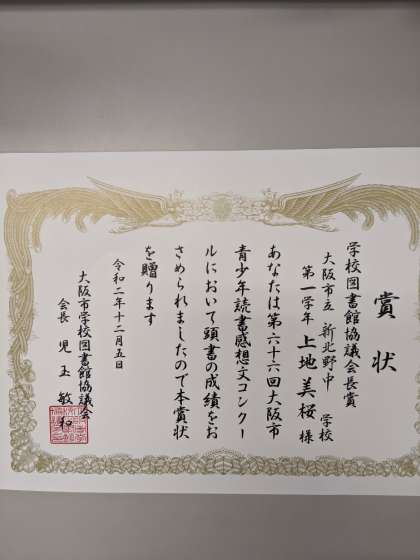 賞状
学校図書館協議会長賞
大阪市立 新北野中 学校
第一学年 上地美桜 様
あなたは第六十六回大阪市
青少年読書感想文コンクー
ルにおいて頭書の成績をお
さめられましたので本賞状
を贈ります
令和二年十二月五日
大阪市学校図書館協議会
会長 児玉敏和